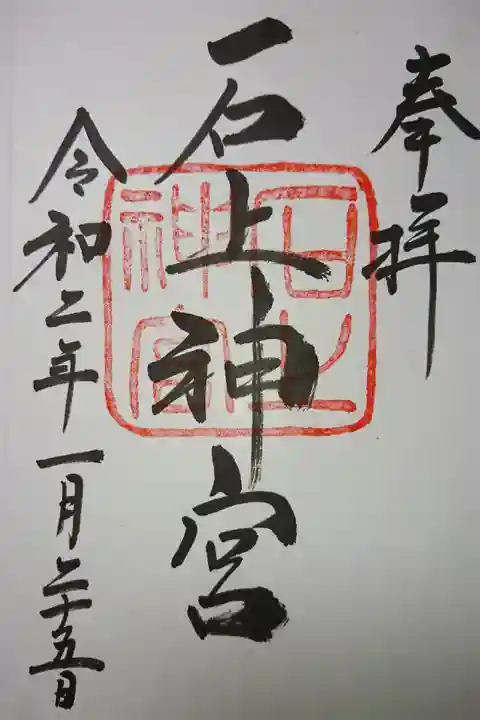 奉拝
石上神宮
令和二年一月二十五日
石上
神宮